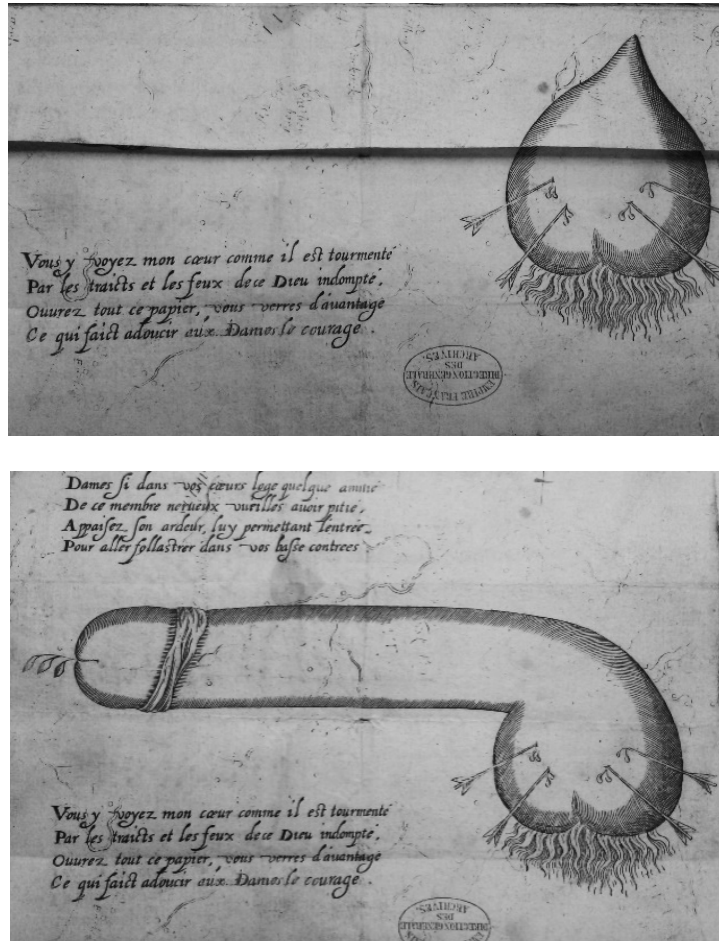 Vous y voyez mon cœur comme il est tourmenté
Par les traicts et les feux de ce Dieu indompté,
Ouurez tout ce papier, vous verres d'auantage
Ce qui faict adoucir aux Dames le courage.
EMPIRE FRANÇAIS
DIRECTION GENERALE
DES
ARCHIVES.
Dames si dans vos cœurs loge quelque amitié
De ce membre nerueux vueillés auoir pitié,
Appaisez son ardeur, luy permettant lentrée
Pour aller follastrer dans vos basse contrees
Vous y voyez mon cœur comme il est tourmenté
Par les traicts et les feux de ce Dieu indompté,
Ouurez tout ce papier, vous verres d'auantage
Ce qui faict adoucir aux Dames le courage.
DIRECTION GENERALE
DES
ARCHIVES.